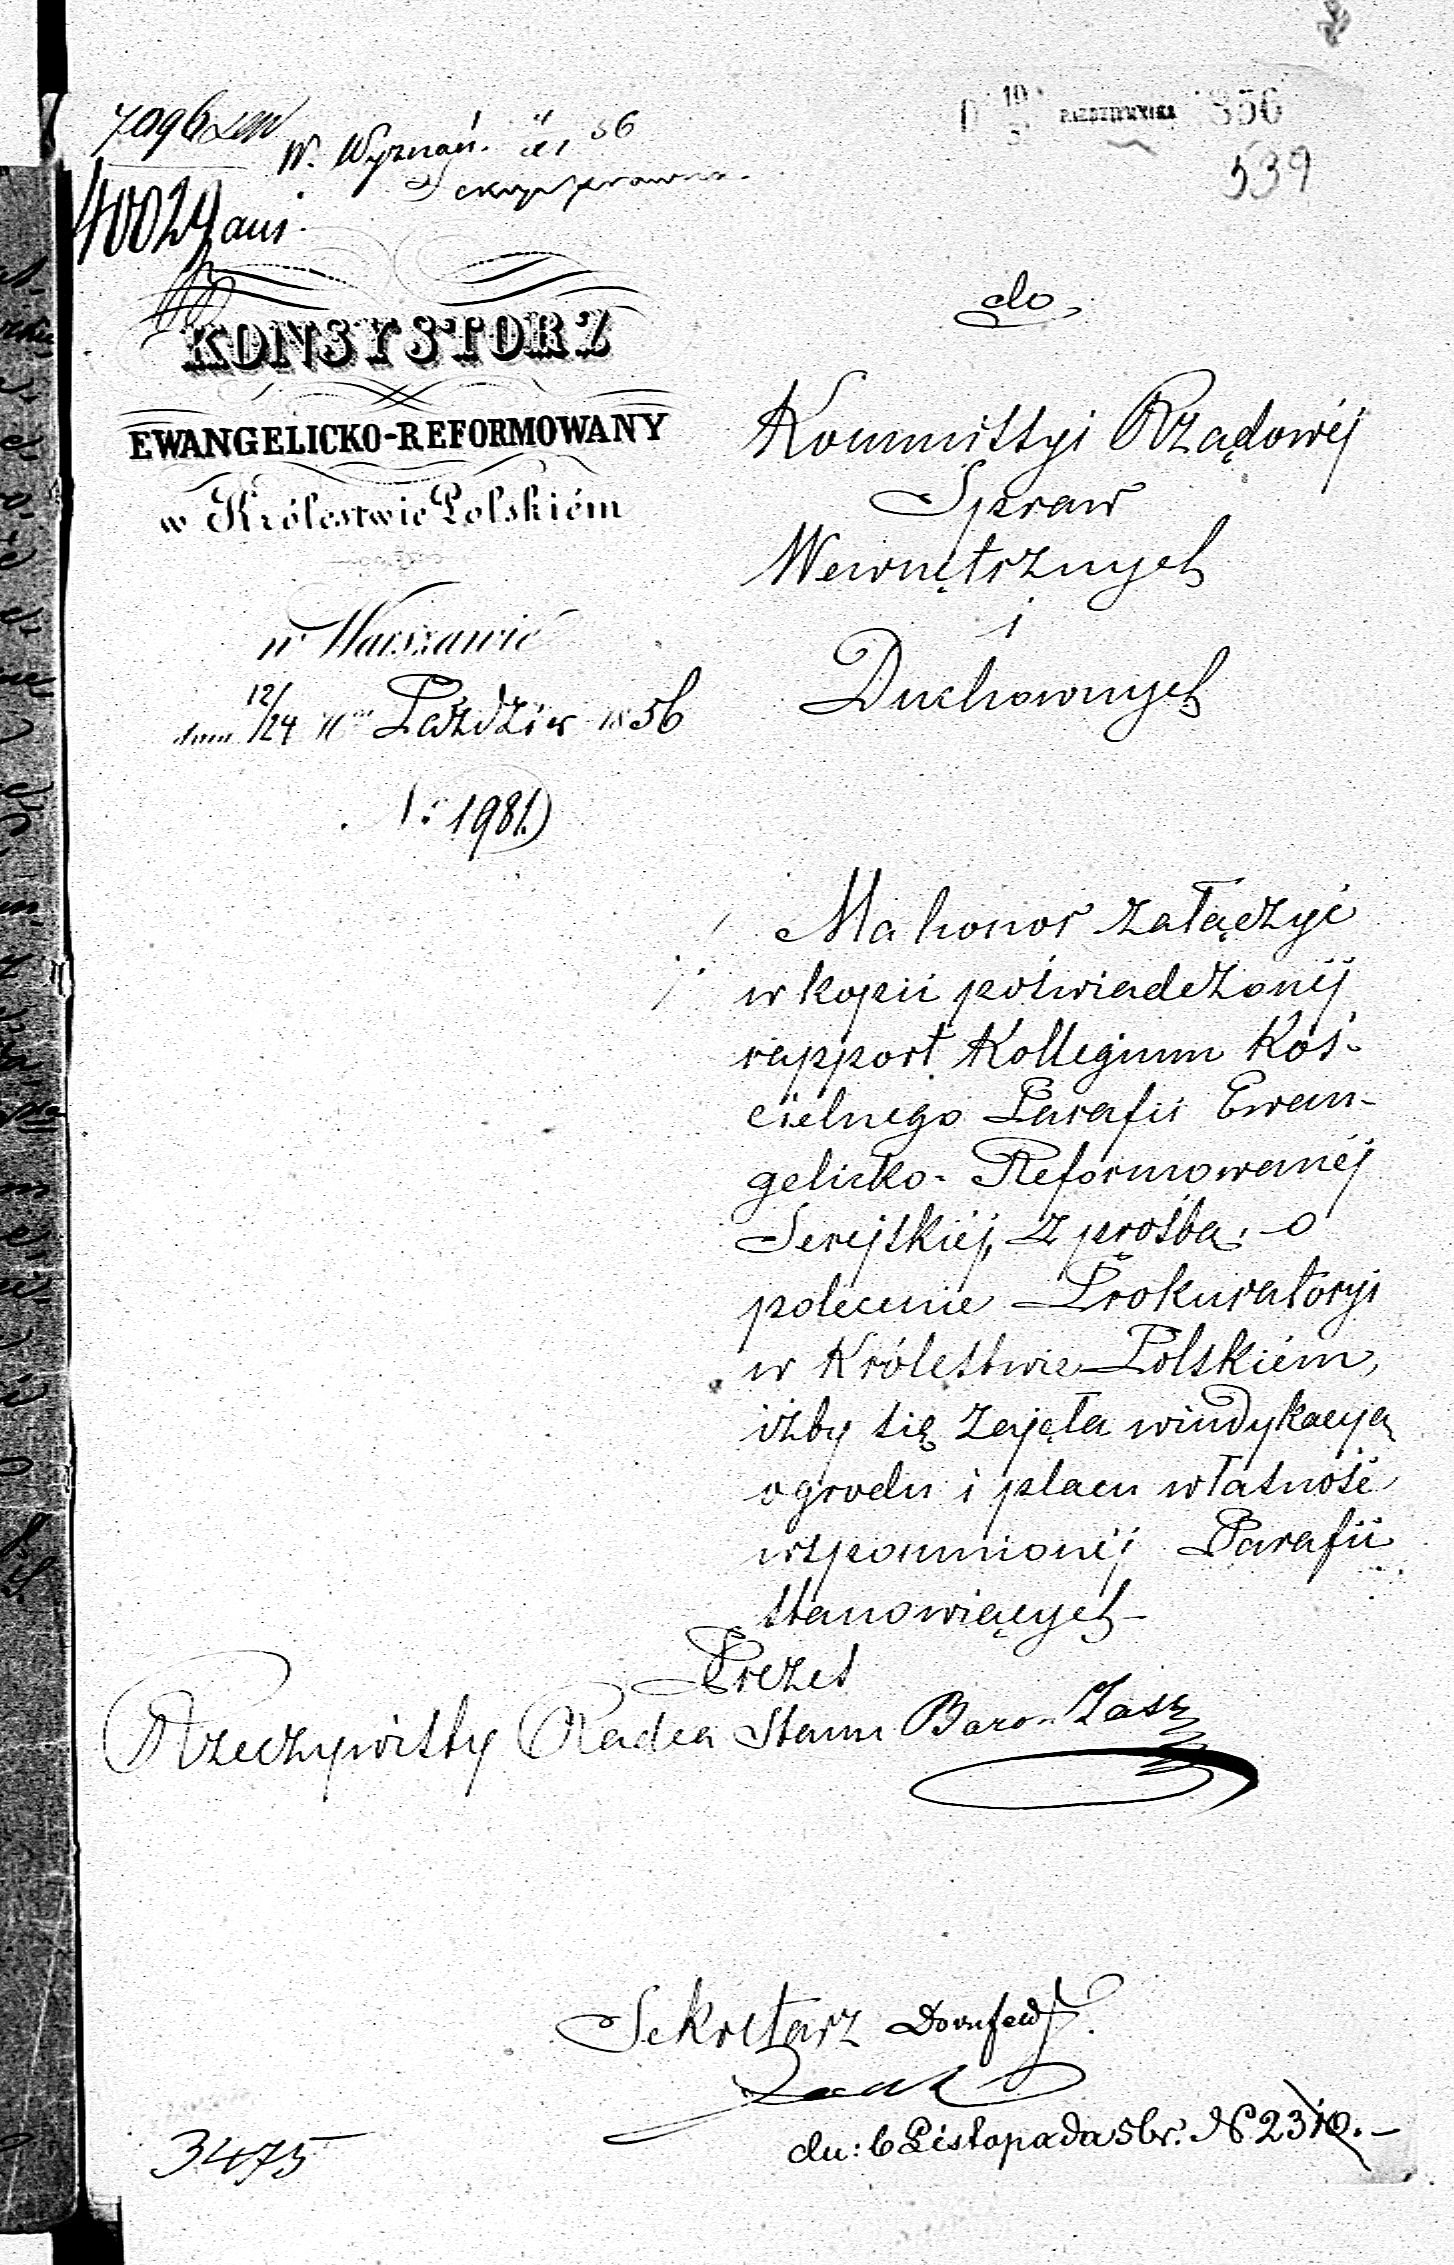 7096
W. Wyznań. 56
D 19 PAZDZIERNIKA 856
539
40029
KONSYSTORZ
EWANGELICKO-REFORMOWANY
w Królestwie Polskiém
w Warszawie
dnia 12/24 Paździer 1856
1981.)
do
Kommissyi Rządowéj
Spraw
Wewnętrznych
i
Duchownych
Ma honor załączyć
w kopii poświadczonéj
rapport Kollegium Koś-
cielnego Parafii Ewan-
gelicko-Reformowanéj
Serejskiéj, z prośbą o
polecenie Prokuratoryi
w Królestwie Polskiém,
iżby się zajęła windykacyą
ogrodu i placu własność
wspomnionéj Parafii
stanowiących
Prezes
Rzeczywisty Radca Stanu Baron
Sekretarz
du: 6 Listopada 56r. N 2310.-
3475